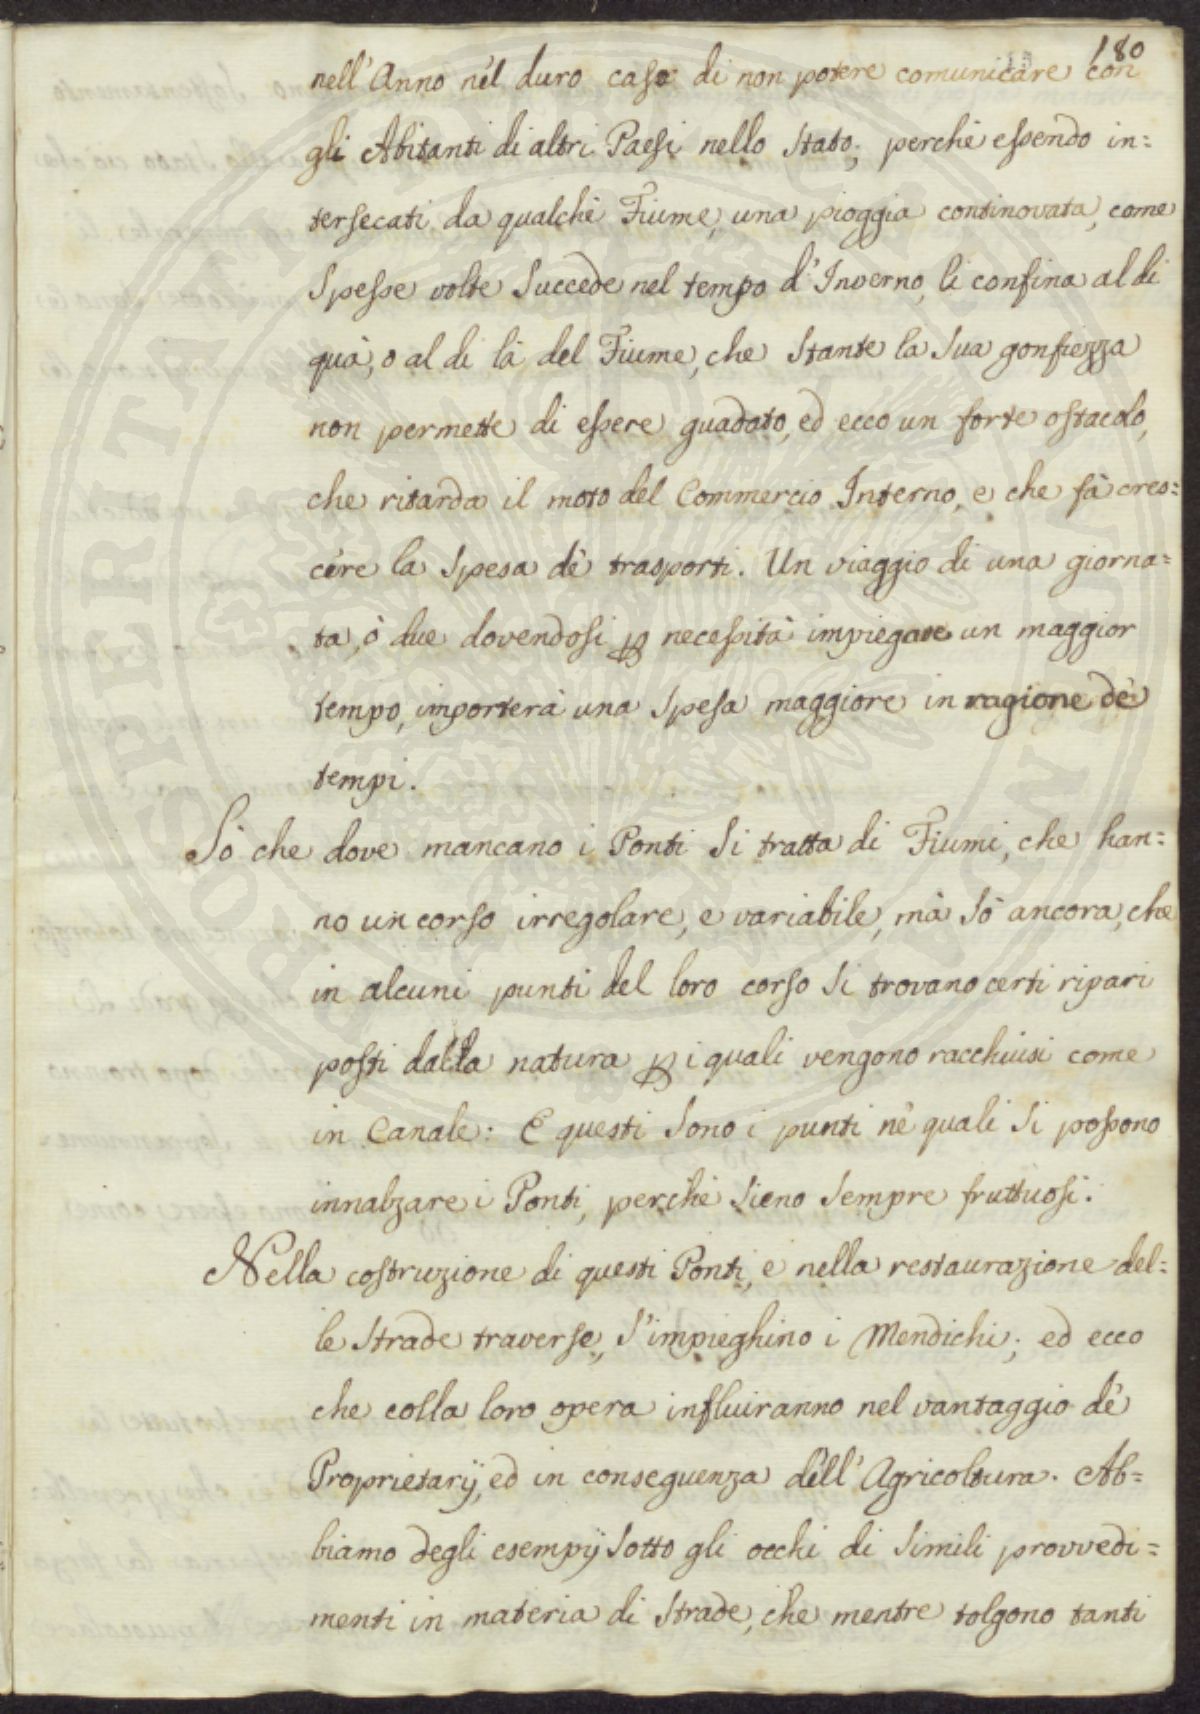 180
nell'Anno nel duro caso di non potere comunicare con
gli Abitanti di altri Paesi nello Stato, perchè essendo in=
tersecati da qualchè Fiume, una pioggia continovata, come
Spesse volte Succede nel tempo d'Inverno, li confina al di
quà, o al di là del Fiume, che Stante la Sua gonfiezza
non permette di essere guadato, ed ecco un forte ostacolo,
che ritarda il moto del Commercio Interno, e che fà cres=
cere la Spesa dè trasporti. Un viaggio di una giorna=
ta, ò due dovendosi ꝑ necessità impiegare un maggior
tempo, importerà una Spesa maggiore in ragione dè
tempi.
Sò che dove mancano i Ponti Si tratta di Fiumi, che han=
no un corso irregolare, e variabile, mà Sò ancora, che
in alcuni punti del loro corso Si trovano certi ripari
posti dalla natura ꝑ i quali vengono racchiusi come
in Canale: E questi Sono i punti nè quali Si possono
innalzare i Ponti, perchè Sieno Sempre fruttuosi.
Nella costruzione di questi Ponti, e nella restaurazione del=
le Strade traverse, S'impieghino i Mendichi; ed ecco
che colla loro opera influiranno nel vantaggio dè
Proprietarij, ed in conseguenza dell'Agricoltura. Ab=
biamo degli esempij Sotto gli occhi di Simili provvedi=
menti in materia di Strade, che mentre tolgono tanti
PROSPERITATI PUBLICAE